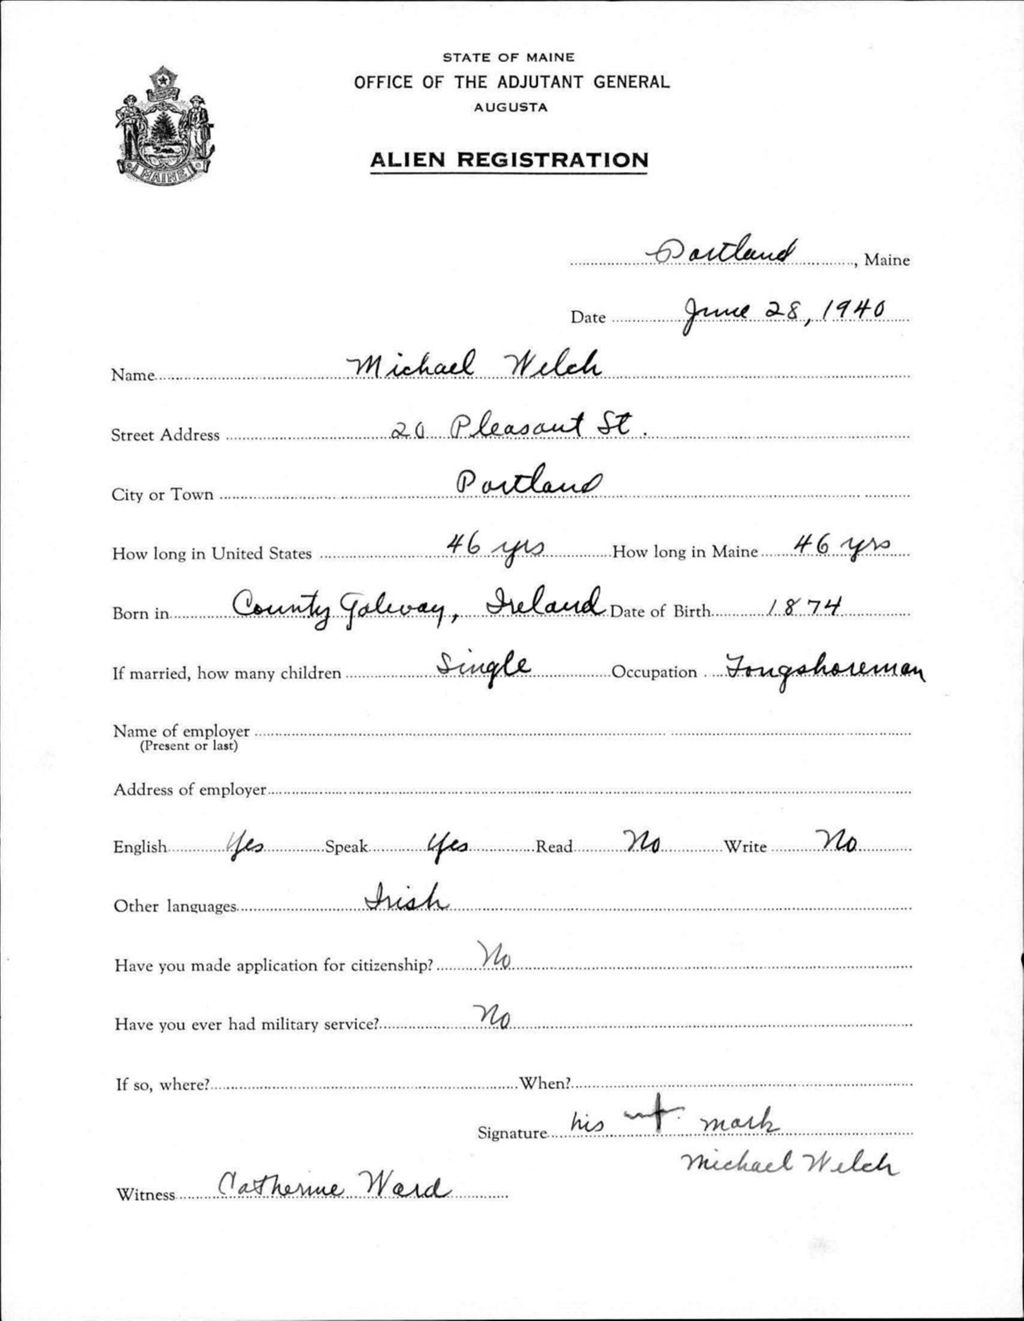 STATE OF MAINE
OFFICE OF THE ADJUTANT GENERAL
AUGUSTA
ALIEN REGISTRATION
MAINE
Portland, Maine
Date June 28, 1940
Name Michael Welch
Street Address 20 Pleasant St.
City or Town Portland
How long in United States 46 yrs How long in Maine 46 yrs
Born in County Galway, Ireland Date of Birth 1874
If married, how many children Single Occupation Longshoreman
Name of employer
(Present or last)
Address of employer
English Yes Speak Yes Read No Write No
Other languages Irish
Have you made application for citizenship? No
Have you ever had military service? No
If so, where? When?
Signature his + mark
Michael Welch
Witness Catherine Ward